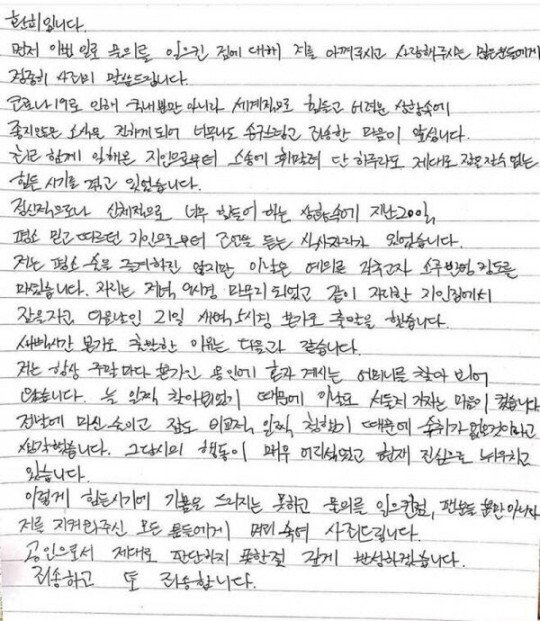 환희입니다.
먼저 이번 일로 물의를 일으킨 점에 대해 저를 아껴주시고 사랑해주시는 많은분들에게
정중히 사과의 말씀드립니다.
코로나19로 인해 국내뿐만 아니라 세계적으로 힘들고 어려운 상황속에
좋지않은 소식을 전하게되어 너무나도 송구스럽고 죄송한 마음이 앞섭니다.
최근 함께 일해온 지인으로부터 소송에 휘말려 단 하루라도 제대로 잠을잘수 없는
힘든 시기를 겪고 있었습니다.
정신적으로나 신체적으로 너무 힘들어 하는 상황속에 지난20일,
평소 믿고 따르던 지인으로부터 조언을 듣는 식사자리가 있었습니다.
저는 평소 술을 즐겨하진 않지만 이날은 예의를 갖추고자 소주반병 정도를
마셨습니다. 자리는 저녁 9시경 마무리 되었고 같이 자리한 지인집에서
잠을자고, 다음날인 21일 새벽 5시경 본가로 출발을 했습니다.
새벽시간 본가로 출발한 이유는 다음과 같습니다.
저는 항상 주말마다 본가인 용인에 혼자 계시는 어머니를 찾아 뵈어
왔습니다. 늘 일찍 찾아뵈었기 때문에 이날도 서둘러 가자는 마음이 컸습니다
전날에 마신 술이고 잠도 비교적 일찍 청했기 때문에 숙취가 없을것이라고
생각했습니다. 그당시의 행동이 매우 어리석었고 현재 진심으로 뉘우치고
있습니다.
이렇게 힘든시기에 기쁨을 드리지는 못하고 물의를 일으킨점, 팬분들 뿐만 아니라
저를 지켜봐주신 모든 분들에게 머리 숙여 사죄드립니다.
공인으로서 제대로 판단하지 못한점 깊게 반성하겠습니다.
죄송하고 또 죄송합니다.